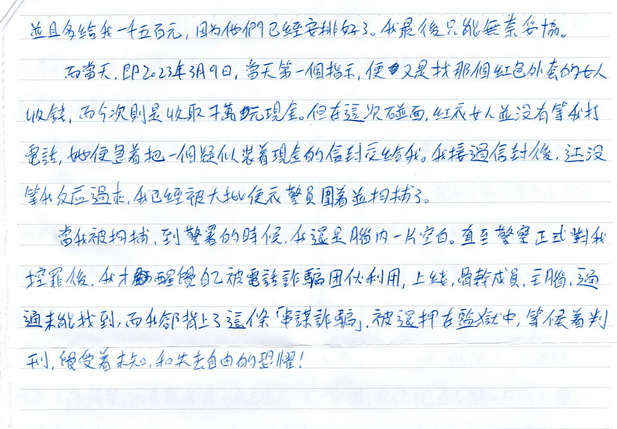 並且多給我一千五百元，因為他們已經安排好了。我最後只能無奈妥協。
而當天，即2023年3月9日，當天第一個指示，便又是找那個紅色外套的女人
收錢，而今次則是收取十萬元現金。但在這次碰面，紅衣女人並沒有等我打
電話，她便急着把一個疑似裝着現金的信封交給我。我接過信封後，还没
等我反应過来，我已經被大批便衣警員圍着並拘捕了。
當我被拘捕，到警署的時候，我還是腦内一片空白。直至警察正式對我
控罪後，我才醒覺自己被電話詐騙团伙利用，上线，骨幹成員，主腦，通
通未能找到，而我卻揹上了這條「串謀詐騙」，被還押在監獄中，等候着判
刑，僾受着未知，和失去自由的恐懼！